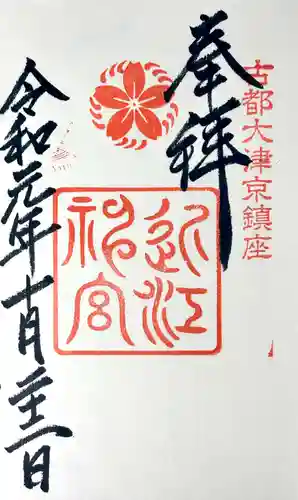 古都大津京鎮座
奉拝
近江
神宮
令和元年十一月二十二日